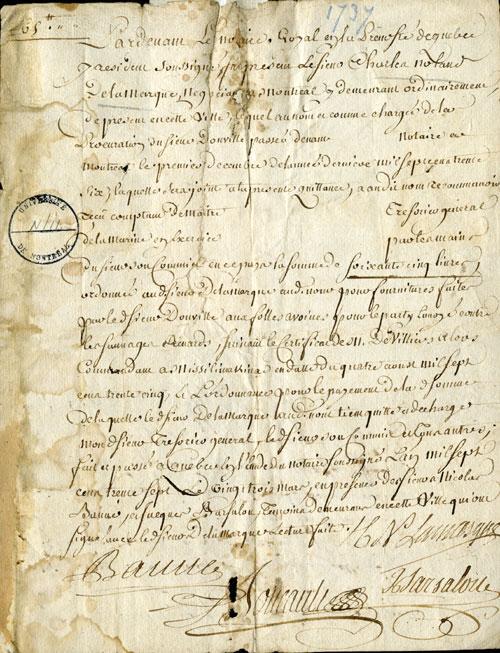 65tt
1737
Pardevant Le notaire Royal en La Prevosté de quebec
y resident soussigné fut present Le sieur Charles Noland
De lamarque, Negociant a Montreal y demeurant ordinairement,
de present en cette Ville, lequel au nom et comme chargé de la
Procuration du sieur Donville passée devant notaire a
Montreal le premier decembre de l'année derniere mil sept cens trente
six, laquelle sera jointe a la presente quittance, a aud. nom reconnu avoir
receu comptant de Maître Tresorier general
de la marine en Exercice par les mains
du sieur son Commis en ce pays la somme de soixante cinq livres
ordonnée aud. sieur Delamarque aud. nom pour fournitures faites
par led. sieur Donville aux folles avoines pour le party envoyé contre
les sauvages Renards, suivant le Certificat de M. De Villiers alors
Commandant a Missilimakina en datte du quatre aoust mil sept
cens trente cinq, et L'ordonnance pour le payement de lad. somme
de laquelle led. sieur Delamarque aud. nom tient quitte et decharge
mond. sieur Tresorier general, led. sieur son Commis et Tous autres;
fait et passé a Quebec en l'Etude du Notaire soussigné L'an mil sept
cens trente sept Le Vingt trois Mars, en presence des sieurs Nicolas
Banne, et Jacques Barsalou Temoins demeurans en cette Ville qui ont
signé avec led. sieur Delamarque Lecture faite.
Ch Nt Lamarque
Banne
Barsalou
UNIVERSITÉ
DE MONTRÉAL